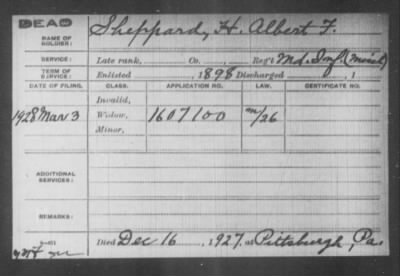 DEAD
NAME OF SOLDIER: Sheppard, H. Albert F.
SERVICE: Late rank, Co. , Reg't Md. Inf.
TERM OF SERVICE: Enlisted , 1898 Discharged , 1
DATE OF FILING. CLASS. APPLICATION NO. LAW. CERTIFICATE NO.
Invalid,
1928 Mar 3 Widow, 1607100 /26
Minor,
ADDITIONAL SERVICES:
REMARKS:
Died Dec 16 , 1927, at Pittsburgh, Pa.